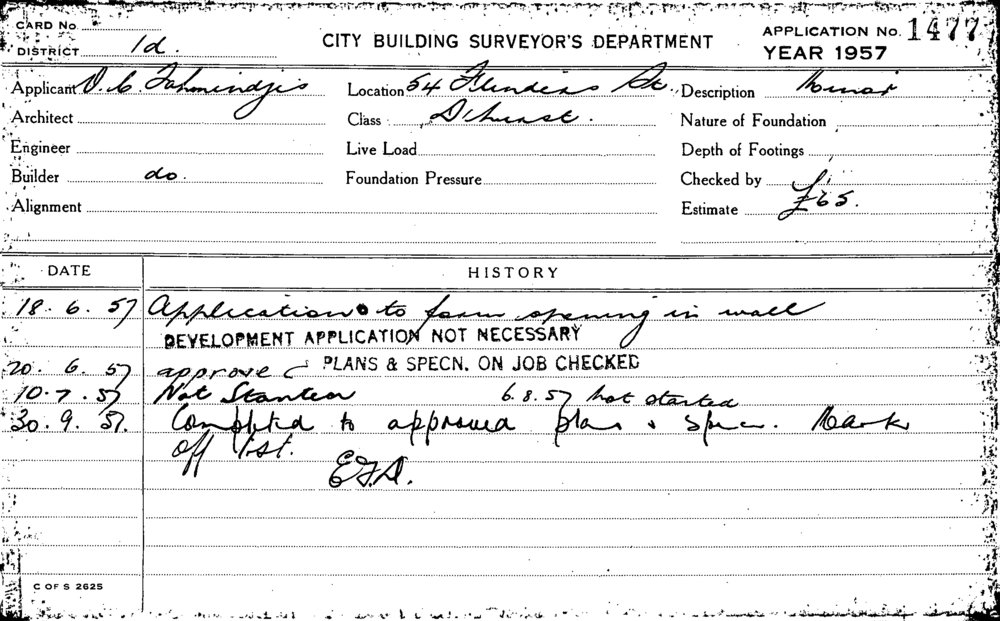 CARD No
DISTRICT 1d.
CITY BUILDING SURVEYOR'S DEPARTMENT
APPLICATION No. 1477
YEAR 1957
Applicant
Location 54 Flinders St. Description Minor
Architect
Class D'hurst. Nature of Foundation
Engineer
Live Load
Depth of Footings
Builder do.
Foundation Pressure
Checked by
Alignment
Estimate £65.
DATE HISTORY
18. 6. 57 Application to form opening in wall
DEVELOPMENT APPLICATION NOT NECESSARY
PLANS & SPECN. ON JOB CHECKED
20. 6. 57 approved
10. 7. 57 Not Started 6. 8. 57 not started
30. 9. 57. Completed to approved plans & specn. Mark
off list.
C OF S 2625